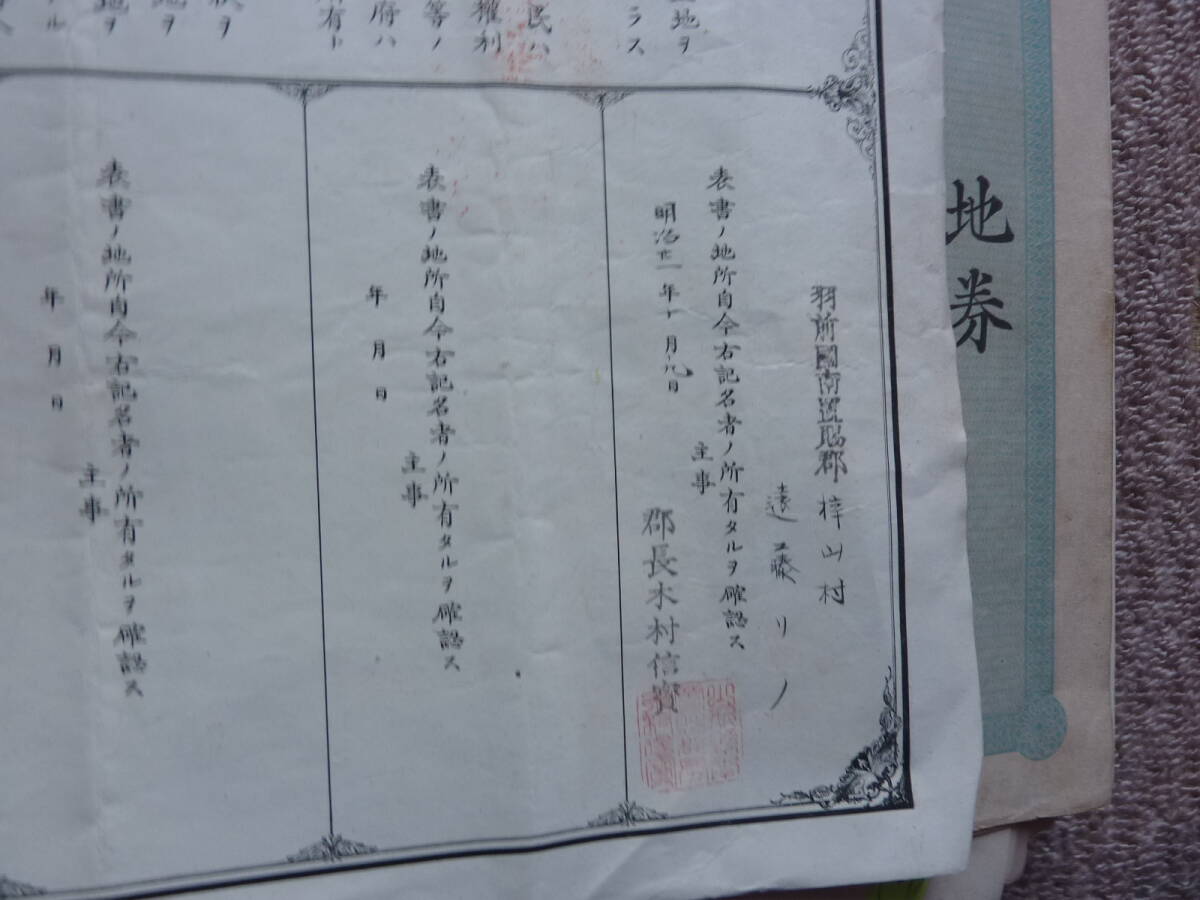 地券
土地ヲ
ラス
民ハ
權利
等ノ
府ハ
有ト
羽前國南置賜郡梓山村
遠藤リノ
表書ノ地所自今右記名者ノ所有タルヲ確認ス
明治廿一年十月 日
主事
郡長木村信
表書ノ地所自今右記名者ノ所有タルヲ確認ス
年月日
主事
表書ノ地所自今右記名者ノ所有タルヲ確認ス
年月日
主事